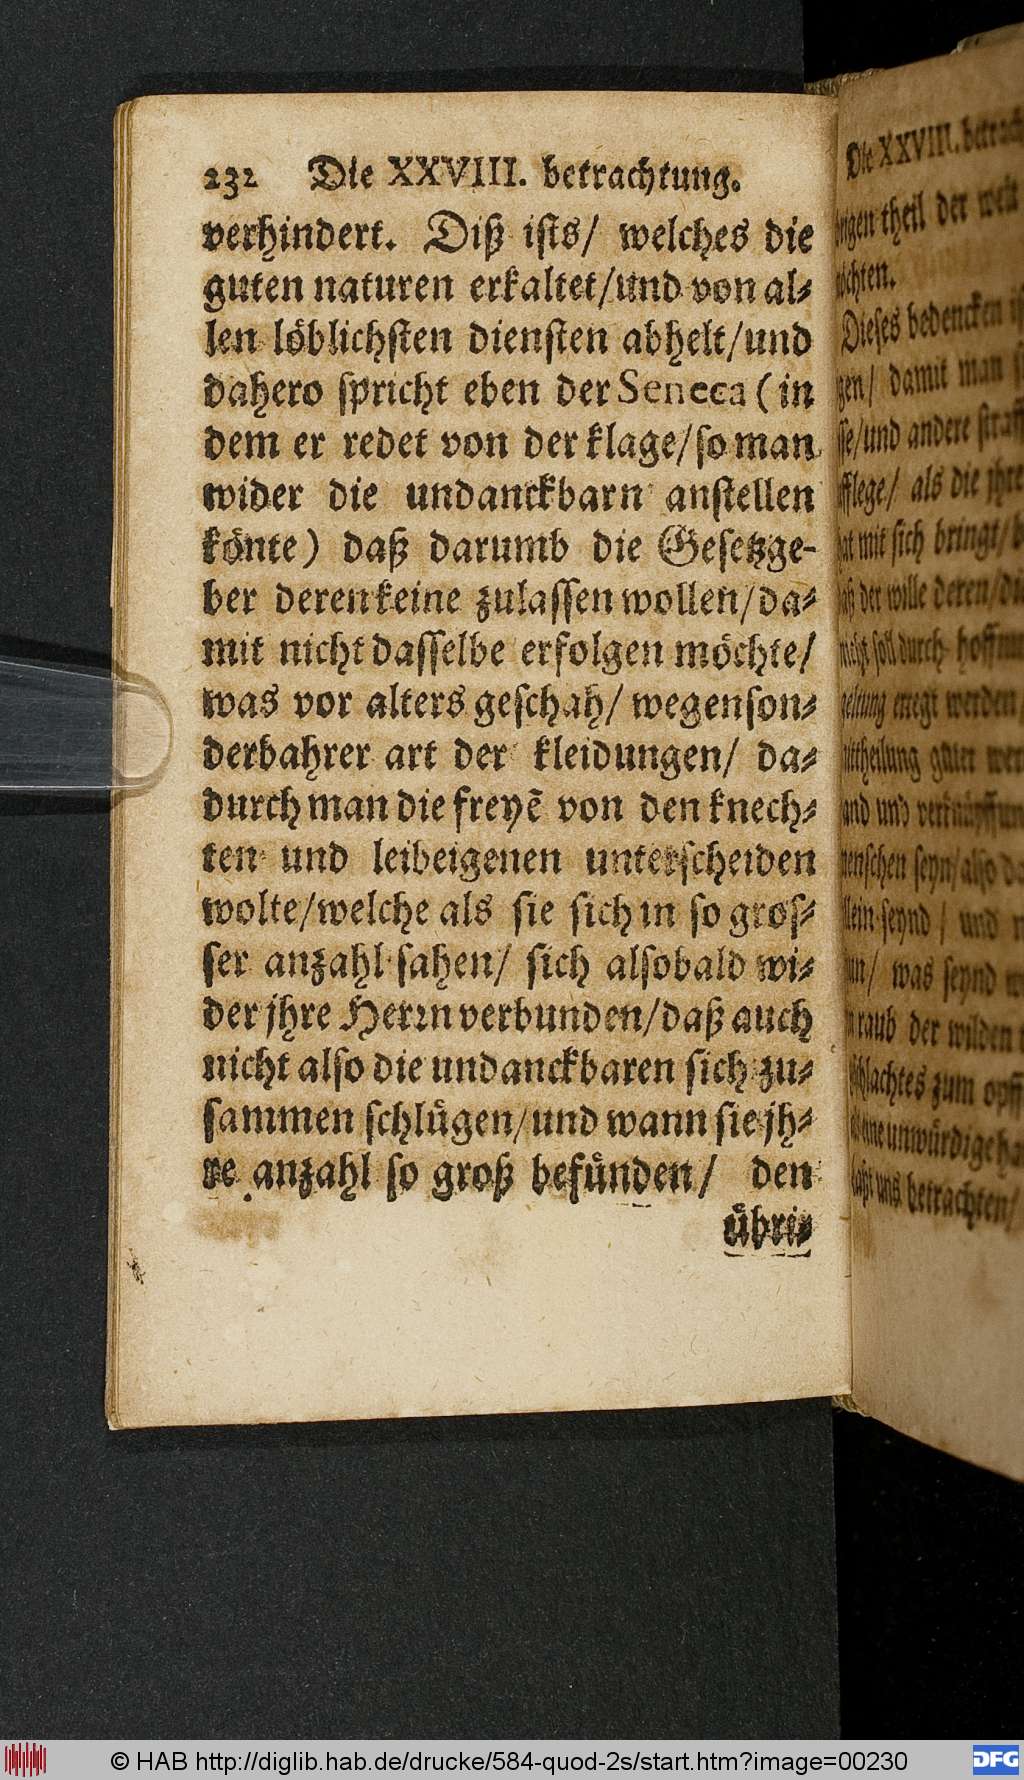 232 Die XXVIII. betrachtung.
verhindert. Diß iſts/ welches die
guten naturen erkaltet/und von al⸗
len loͤblichſten dienſten abhelt/und
dahero ſpricht eben der Seneca (in
dem er redet von der klage/ſo man
wider die undanckbarn anſtellen
koͤnte) daß darumb die Geſetzge-
ber deren keine zulaſſen wollen/da⸗
mit nicht daſſelbe erfolgen moͤchte/
was vor alters geſchah/ wegen ſon⸗
derbahrer art der kleidungen/ da⸗
durch man die freyẽ von den knech⸗
ten und leibeigenen unterſcheiden
wolte/welche als ſie ſich in ſo groſ⸗
ſer anzahl ſahen/ ſich alſobald wi⸗
der jhre Herꝛn verbunden/daß auch
nicht alſo die undanckbaren ſich zu⸗
ſammen ſchluͤgen/und wann ſie jh⸗
re anzahl ſo groß befuͤnden/ den
uͤbri⸗
Die XXVIII. betrach
theil der welt
Dieſes bedencken
gen/ damit man
ſſe/und andere ſtraff
als die jhre
mit ſich bringt/
der wille deren/
ſoll durch hoffnun
erregt werden
guter wer
und verknuͤpffun
menſchen ſeyn/alſo
ſeynd/ und
was ſeynd
raub der wilden
zum opff
unwuͤrdige
uns betrachten/
© HAB http://diglib.hab.de/drucke/584-quod-2s/start.htm?image=00230
DFG